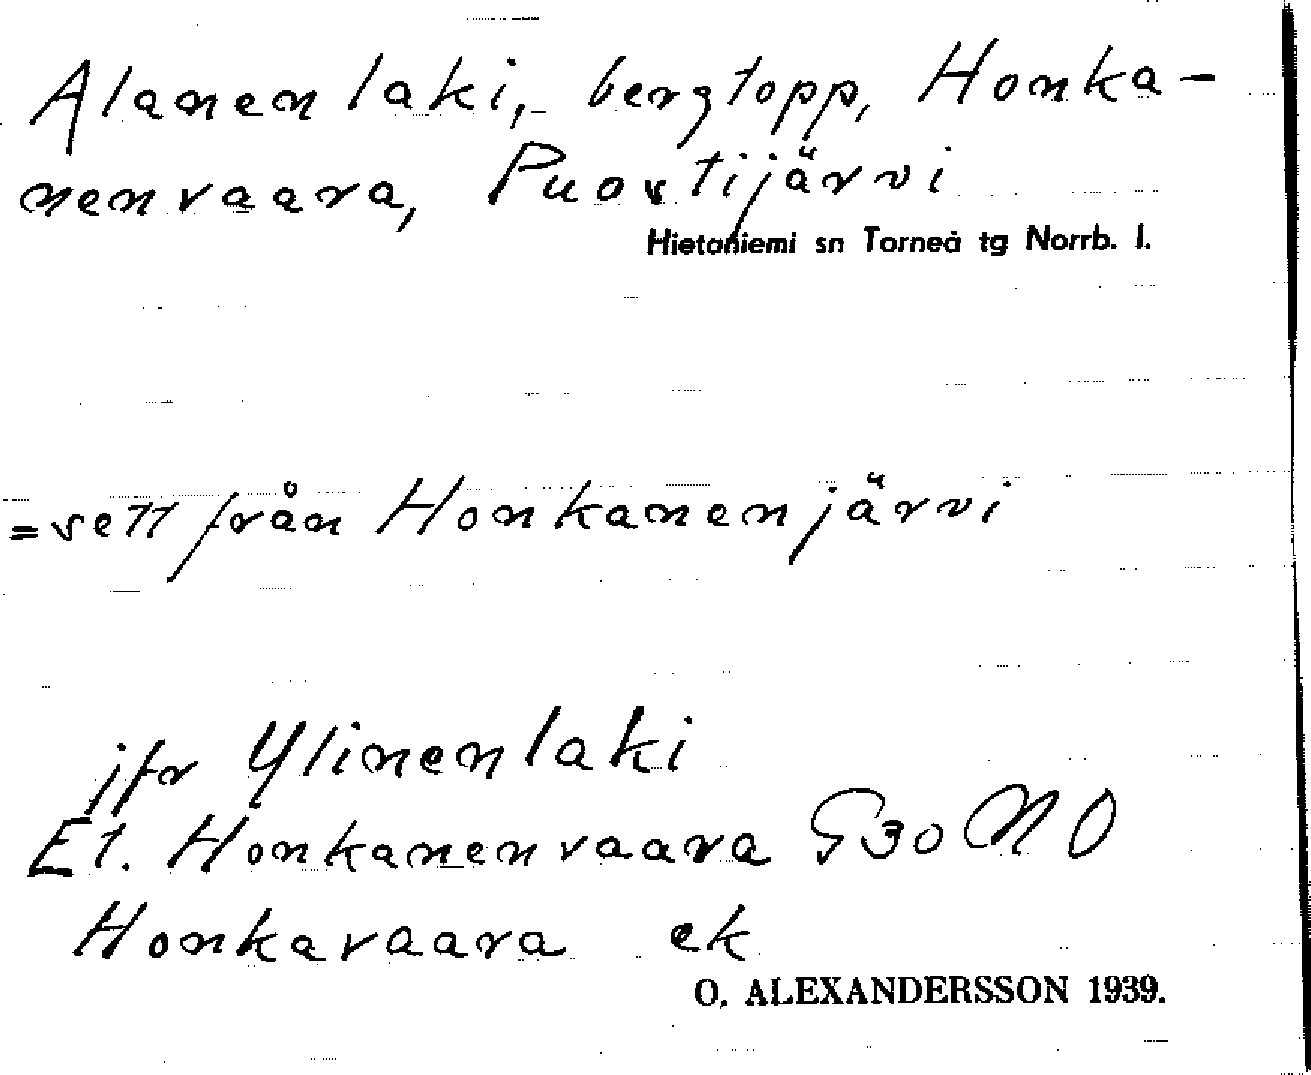 Alanenlaki, bergtopp, Honka-
nenvaara, Puostijärvi
Hietaniemi sn Torneå tg Norrb. l.
= sett från Honkanenjärvi
jfr Ylinenlaki
Et. Honkanenvaara G30 NO
Honkavaara ek
O. ALEXANDERSSON 1939.